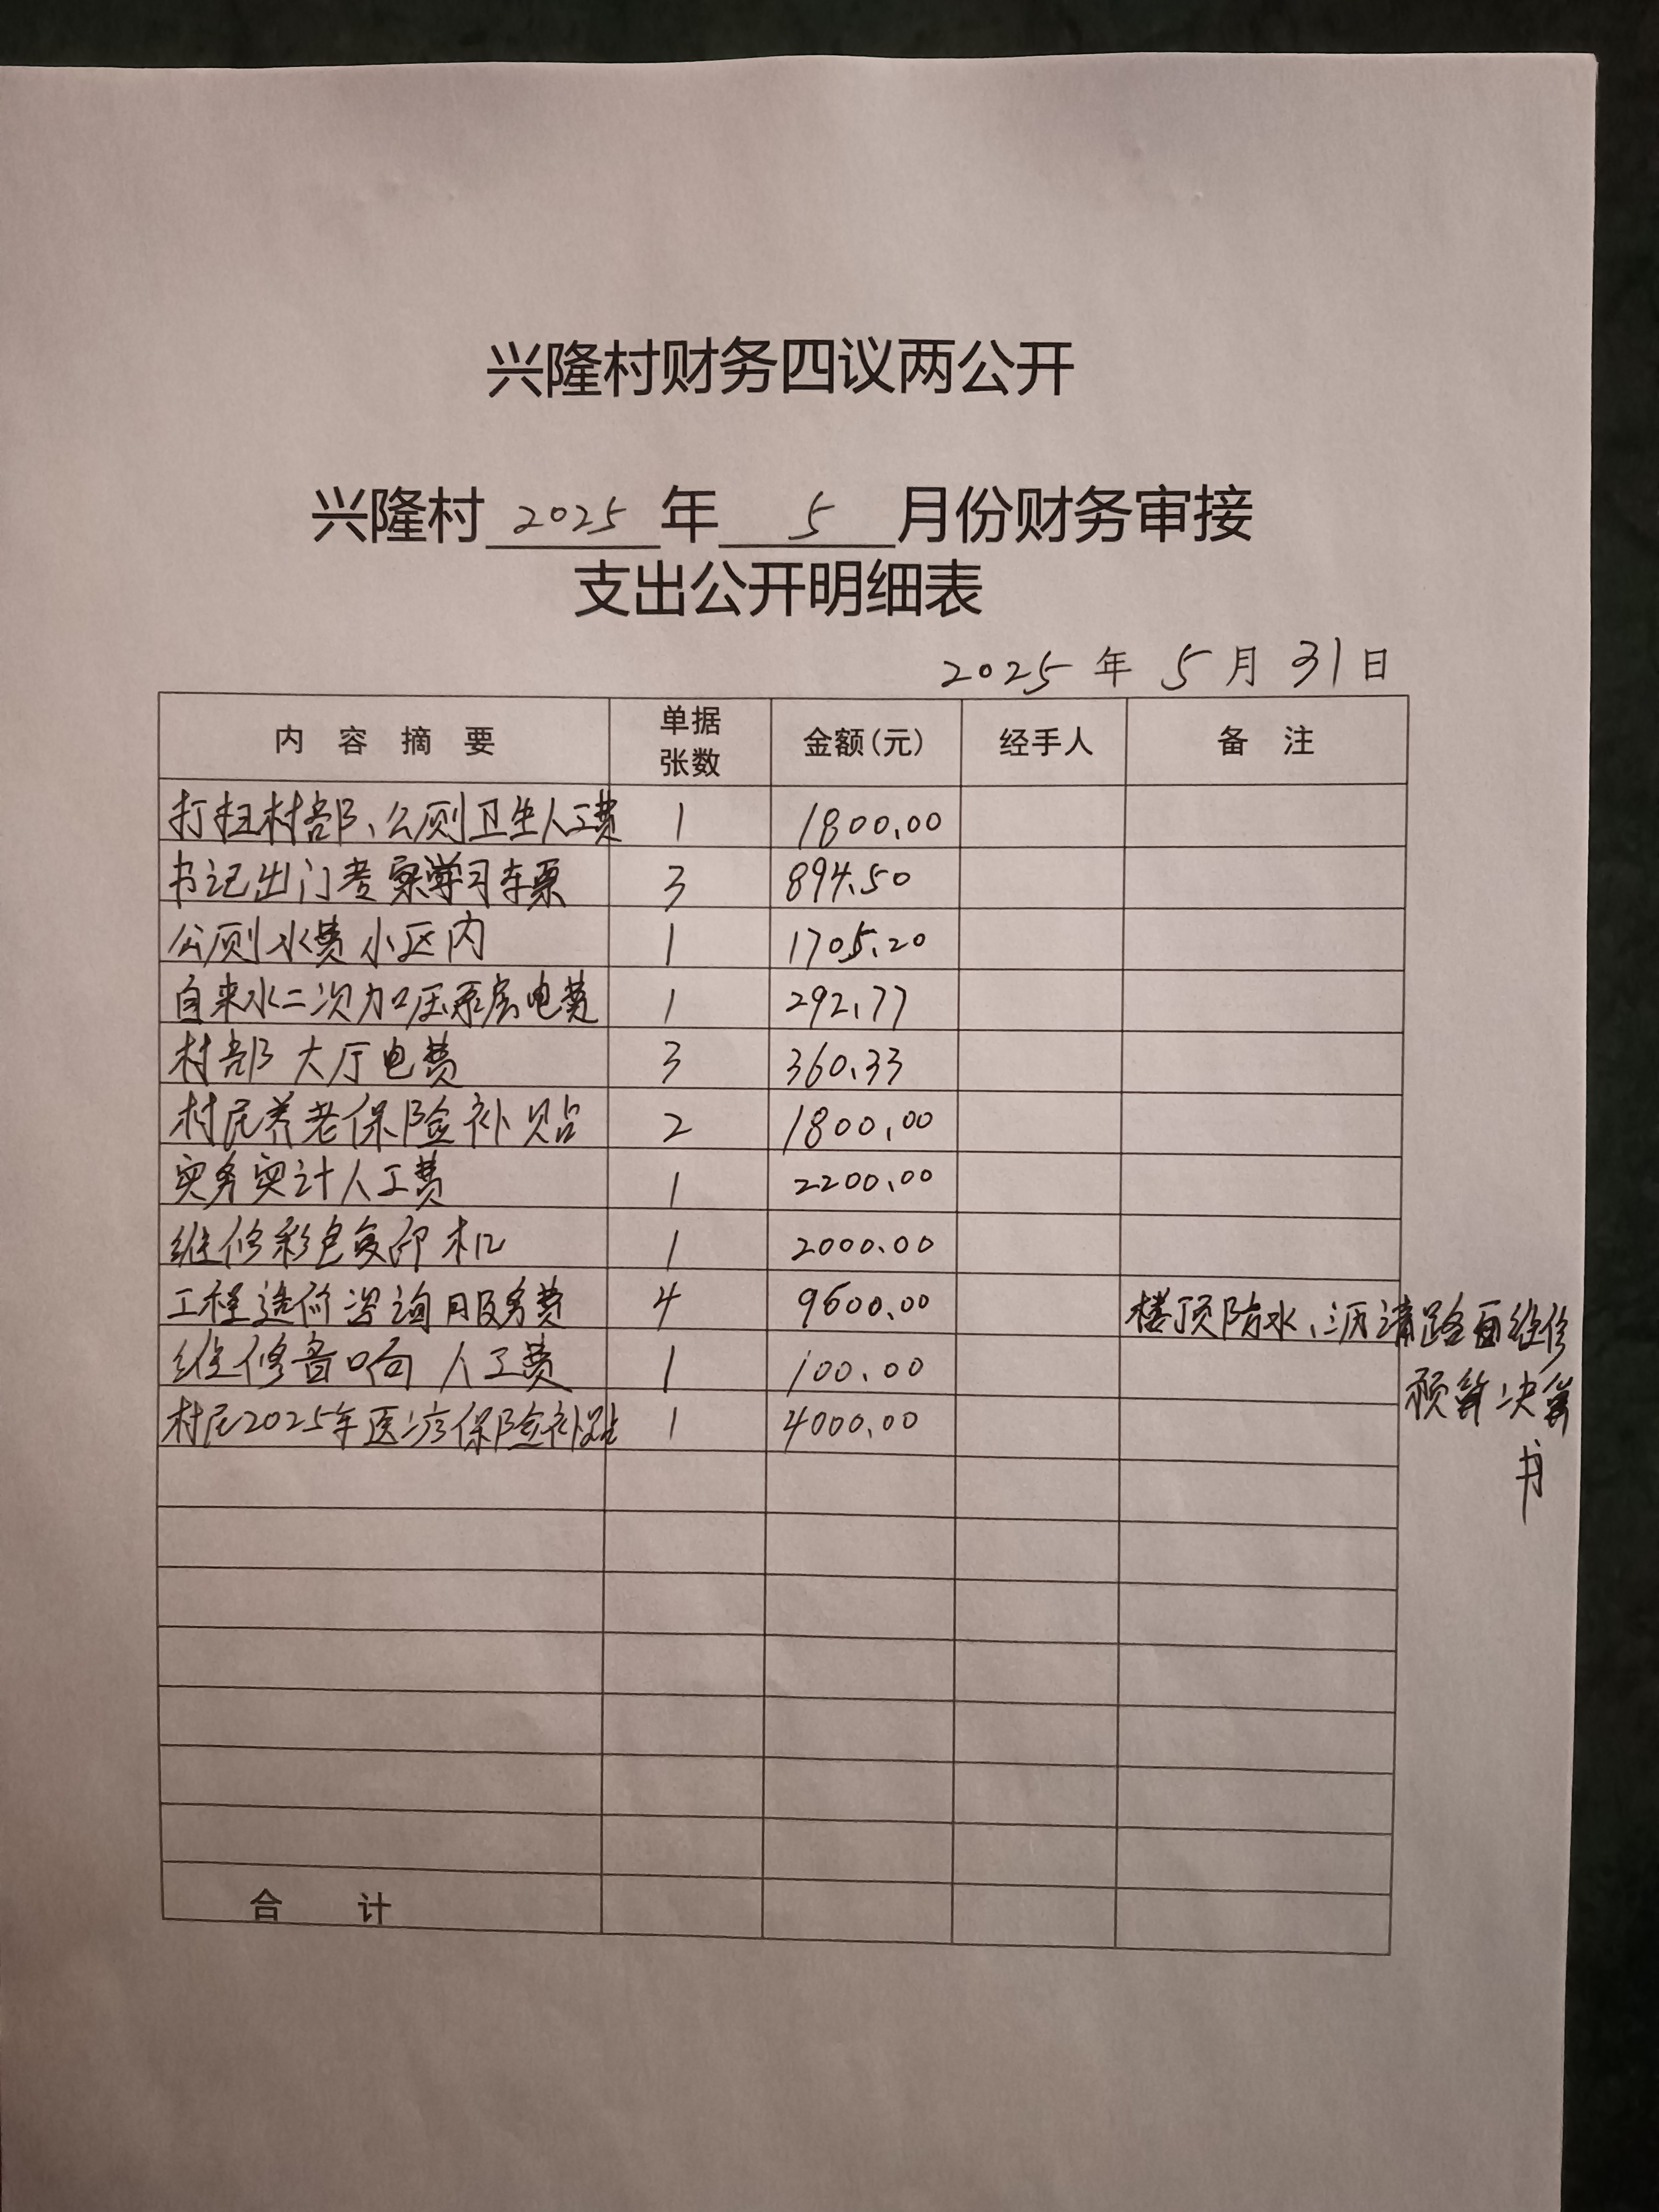 兴隆村财务四议两公开
兴隆村 2025 年 5 月份财务审接
支出公开明细表
2025 年 5 月 31 日
内 容 摘 要 单据张数 金额(元) 经手人 备 注
打扫村部、公厕卫生人工费 1 1800.00
书记出门考察学习车票 3 894.50
公厕水费小区内 1 1705.20
自来水二次加压泵房电费 1 292.77
村部大厅电费 3 360.33
村民养老保险补贴 2 1800.00
实务实计人工费 1 2200.00
维修彩色复印机 1 2000.00
工程造价咨询服务费 4 9600.00 楼顶防水、沥清路面维修
预算决算
书
维修音响人工费 1 100.00
村民2025年医疗保险补贴 1 4000.00
合 计